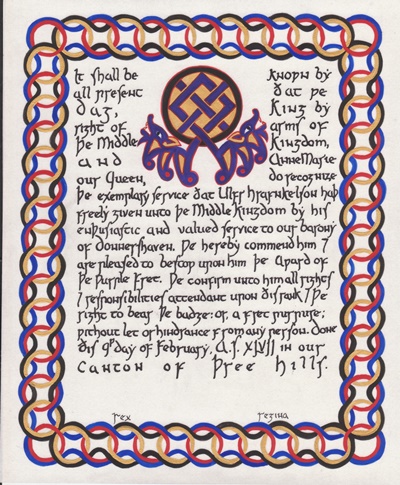 It shall be knoƿn by
all present ðat ƿe
dag, King by
right of arms of
þe Middle Kingdom,
and AnneMarie
our Queen, do recognize
þe exemplary service ðat Ulfr Hrafnkelson haþ
freely given unto þe Middle Kingdom by his
enþusiastic and valued service to our barony
of Donnershaven. ƿe hereby commend him ⁊
are pleased to bestoƿ upon him þe aƿard of
þe Purple Fret. ƿe confirm unto him all rights
⁊ responsibilities attendant upon ðis rank ⁊ þe
right to bear þe badge: or, a fret purpure;
ƿithout let or hindrance from any person. Done
ðis 9þ day of February, A.S. XLVII in our
Canton of Þree Hills.
rex regina